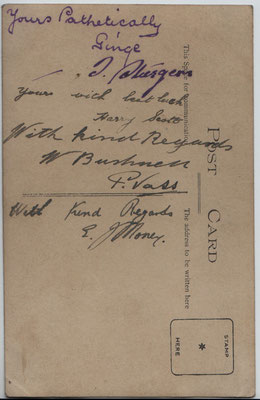 Yours Pathetically
Ginge
Yours with best luck
Harry Scott
With kind Regards
W Bushnell
P. Vass
With Kind Regards
E. J Money.
POST CARD
This Space for communication
The address to be written here
STAMP
*
HERE